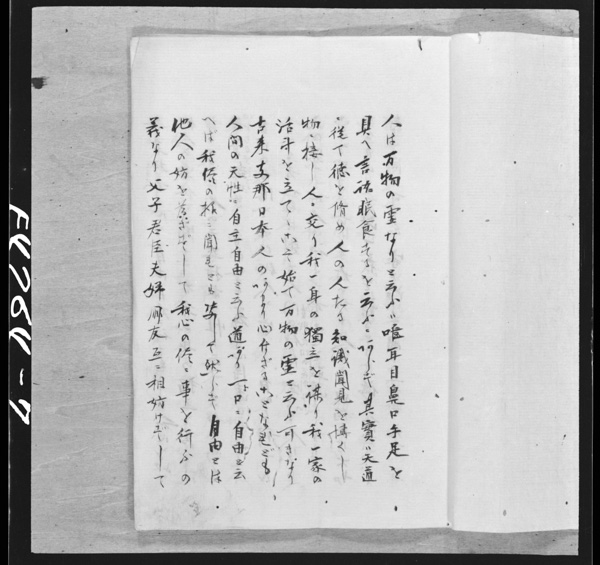 人は万物の霊なりと云ふハ唯耳目鼻口手足を
具へ言語眠食するを云ふニあらず其實ハ天道
ニ従て徳を脩め人の人たる知識聞見を博くし
物ニ接し人ニ交り我一身の獨立を謀り我一家の
活計を立てゝこそ始て万物の霊と云ふ可きなり
古来支那日本人のあまり心付ざることなれども
人間の天性ニ自主自由と云ふ道あり一口ニ自由と云
へば我侭の様ニ聞れども決して然らず自由とは
他人の妨を為さずして我心の侭ニ事を行ふの
義なり父子君臣夫婦朋友互ニ相妨けずして
FK7264-7